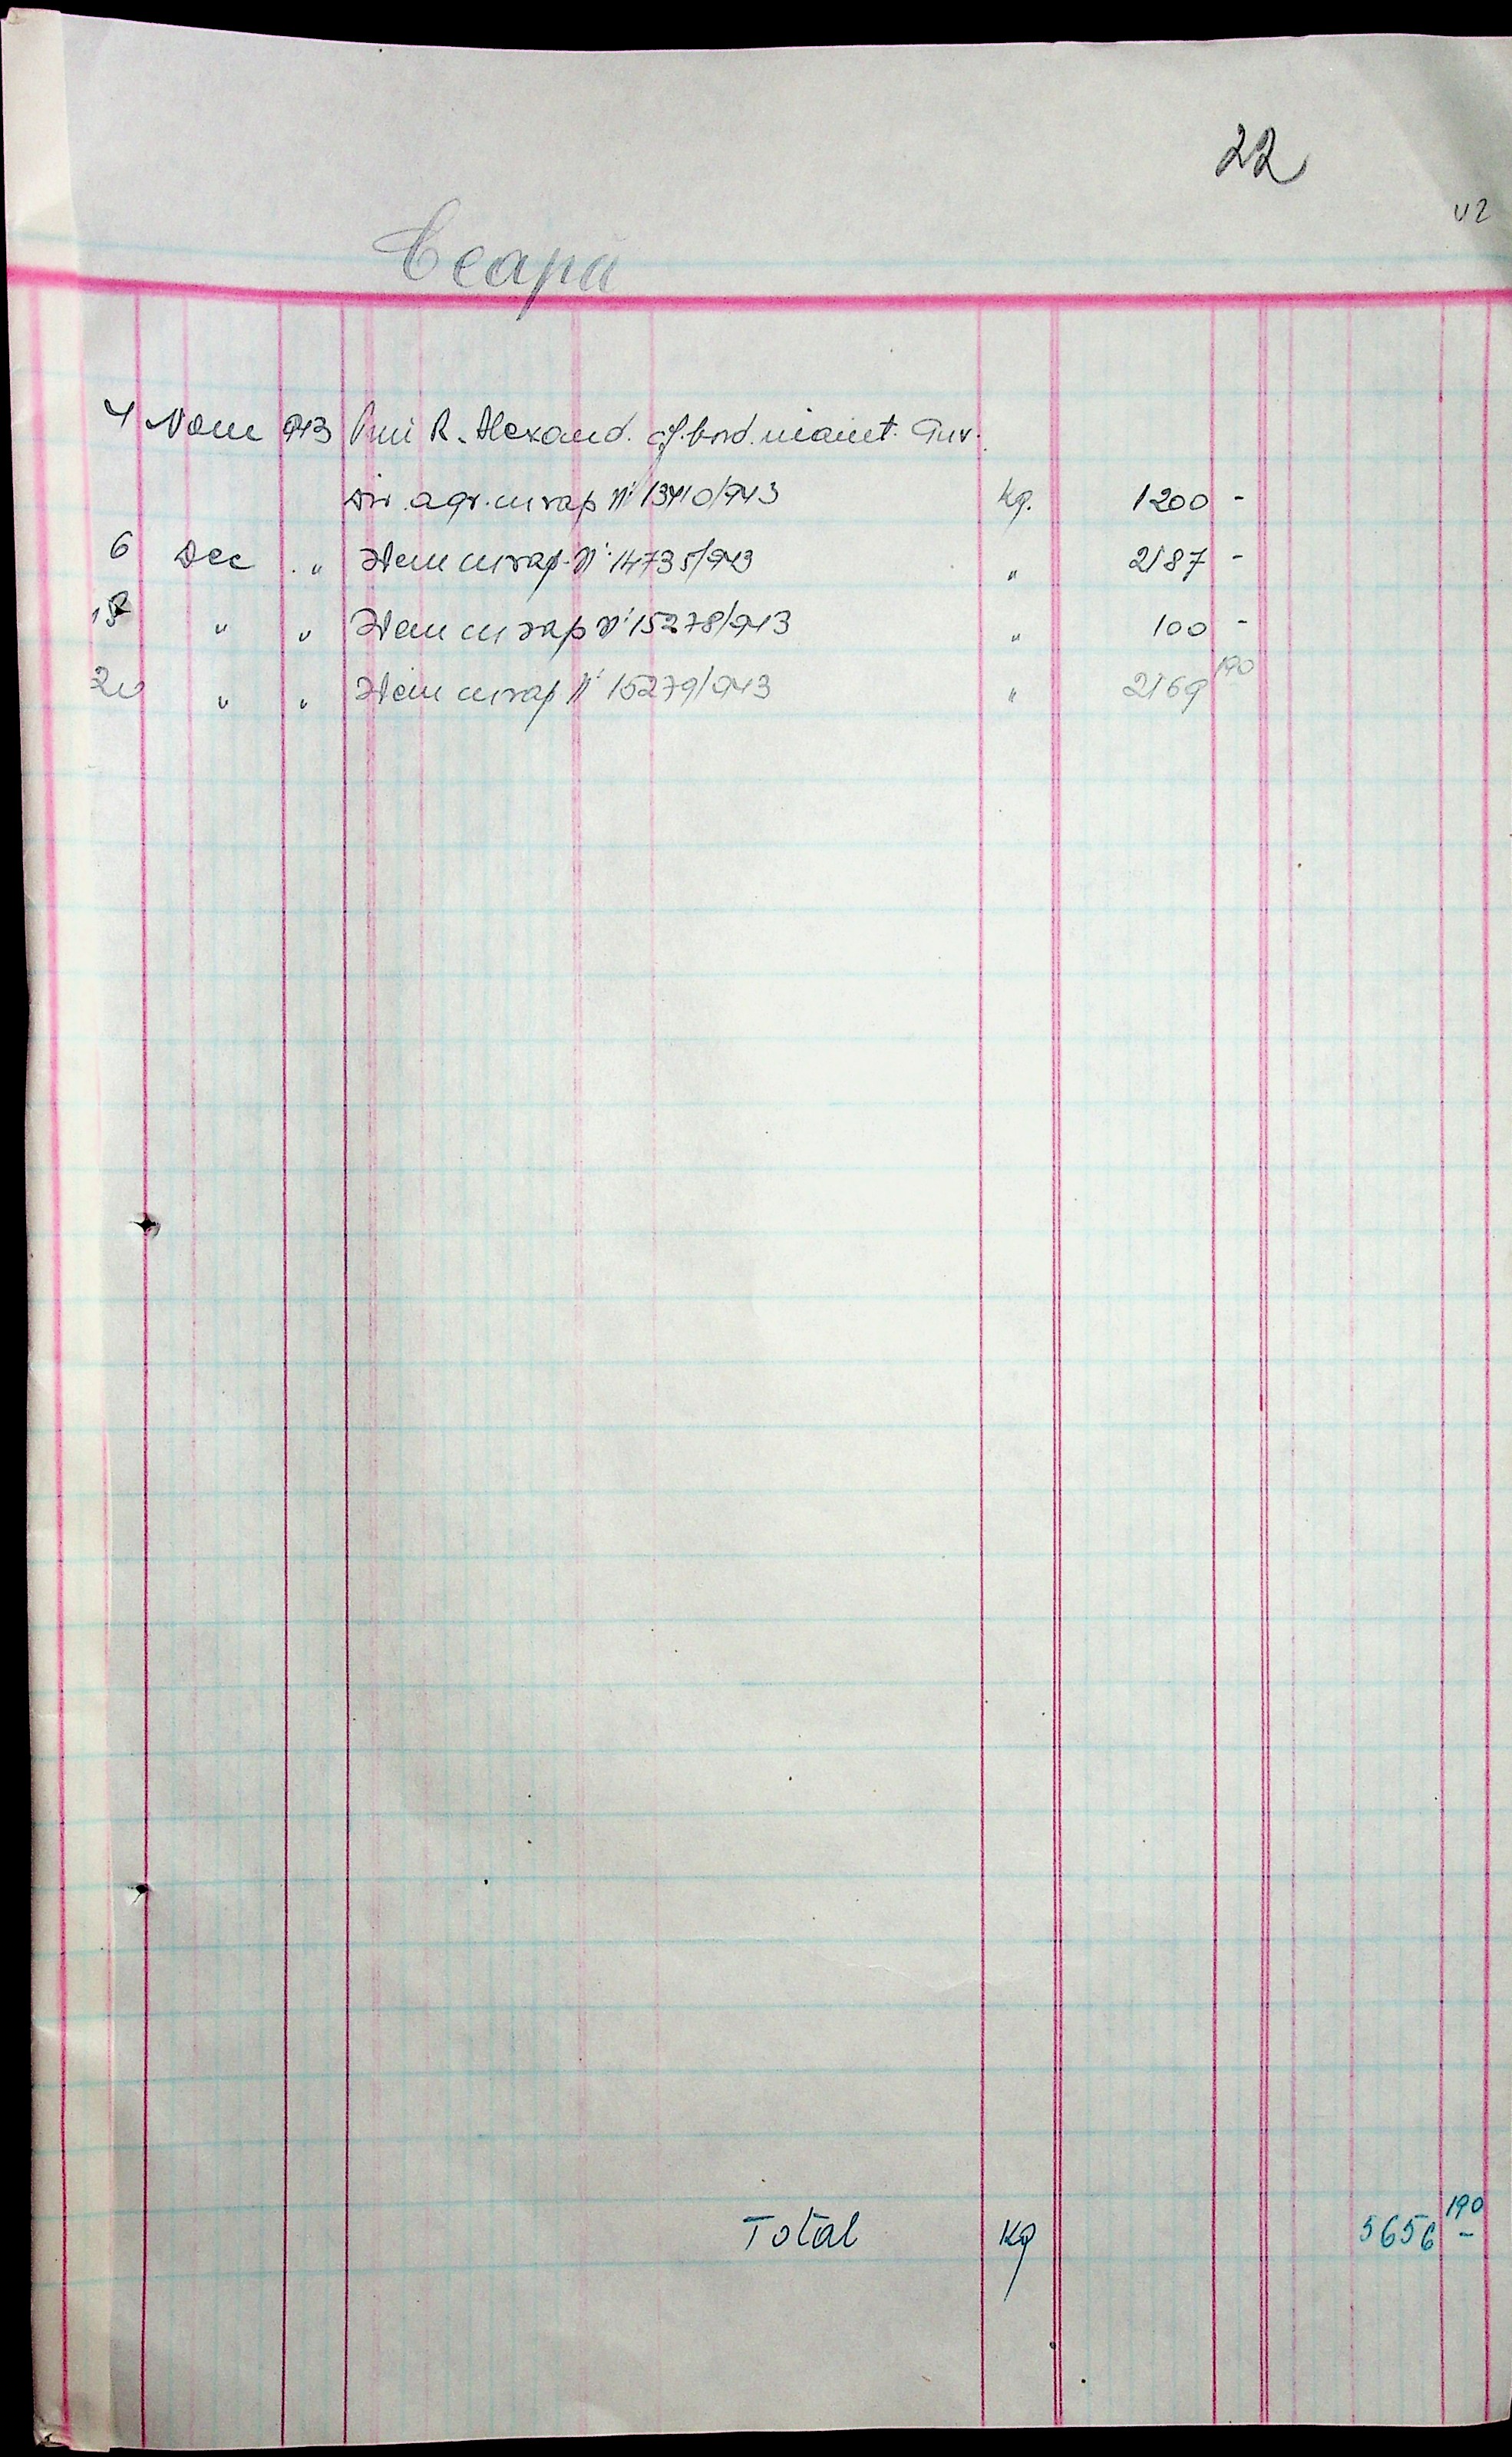 22
42
Ceapă
4 Noem 943 Prin R. Alexand. cf. bord. inaint. Guv.
Dir. agr. cu rap Nº 13410/943 kg. 1200 -
6 Dec " Idem cu rap. Nº 14735/943 " 2187 -
18 " " Idem cu rap Nº 15278/943 " 100 -
20 " " Idem cu rap Nº 15279/943 " 2169 190
Total Kg 5656 190 -